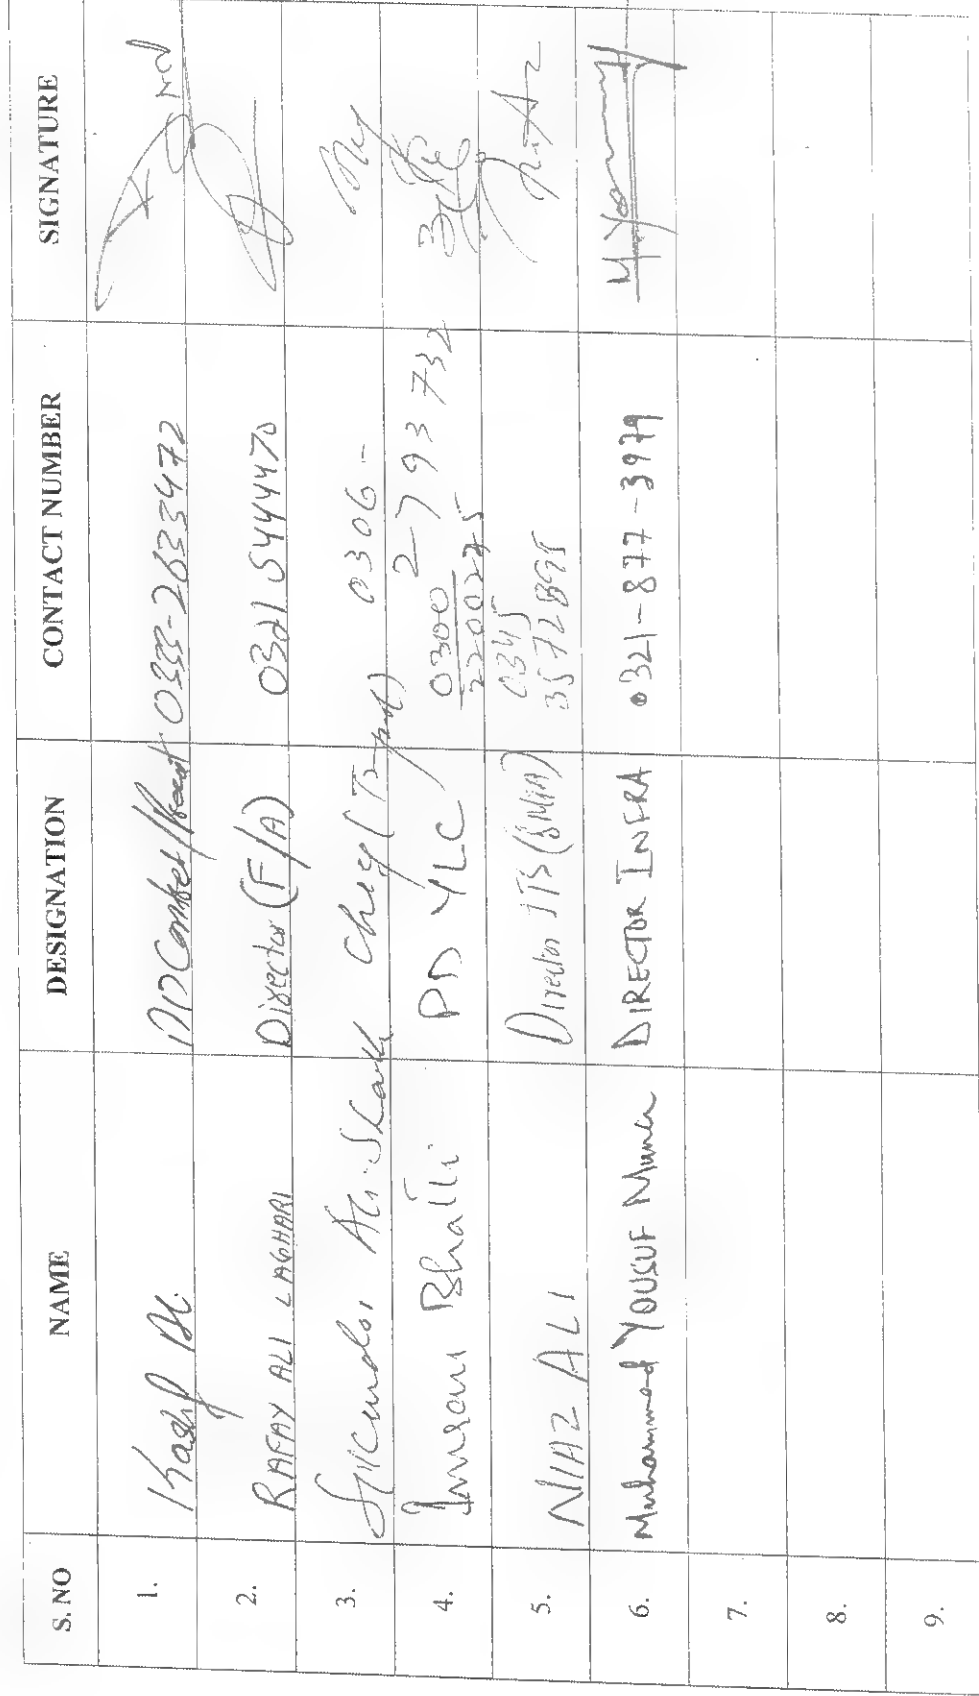 S. NO NAME DESIGNATION CONTACT NUMBER SIGNATURE
1. Kashif Ali 0333-2633472
2. RAFAY ALI LAGHARI Director (F/A) 0321 5444470
3. Ali Chief 0306-
2793732
4. Imran Bhatti PD YLC 0300
2200225
5. NIAZ ALI Director ITS 0345
3572895
6. Muhammad YOUSUF DIRECTOR INFRA 0321-877-3979
7.
8.
9.